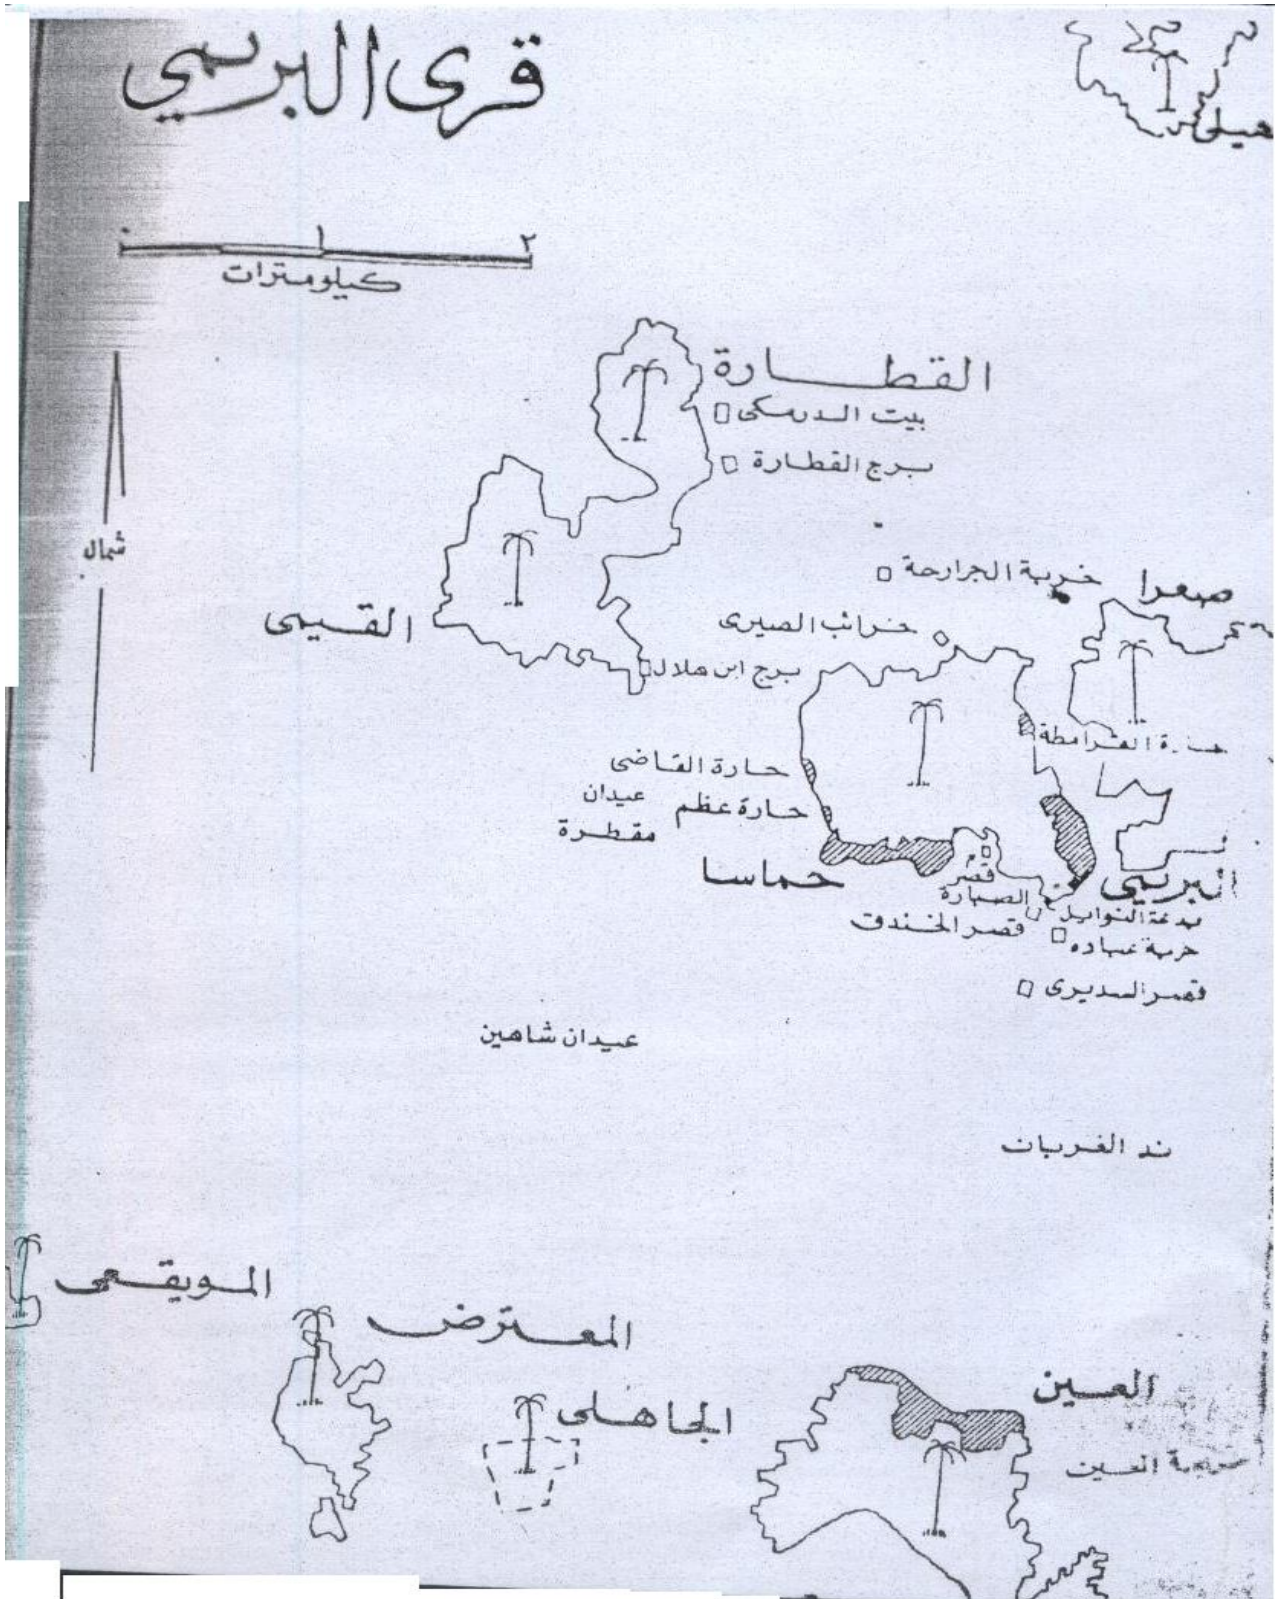 قرى البريمي
هيلي
٠ ١ ٢
كيلومترات
شمال
القطارة
بيت الدرمكى
برج القطارة
خربة الجرارحة
صعرا
خرائب الصيرى
القيمى
برج ابن هلال
حارة القرامطة
حارة القاضى
حارة عظم
عيدان
مقطرة
حماسا
البريمي
قصر
الصبارة
قصر الخندق
قصر السديرى
عيدان شاهين
ند الغربان
المويقعى
المعترض
الجاهلى
العين
العين